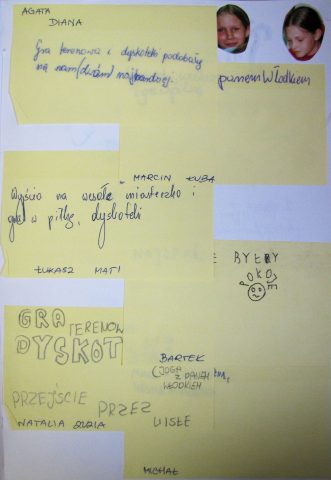 AGATA
DIANA
Gra terenowa i dyskoteki podobały
się nam (dwóm) najbardziej.
panem Włodkiem
MARCIN ŁUBA
Wyjście na wesołe miasteczko i
gra w piłkę, dyskoteki
ŁUKASZ MATI
BYŁBY
OKO
GRA
TERENOW
DYSKOT
BARTEK
(JOGA
Z PANEM
WŁODKIEM
PRZEJŚCIE PRZEZ
WISŁĘ
NATALIA ZUZIA
MICHAŁ